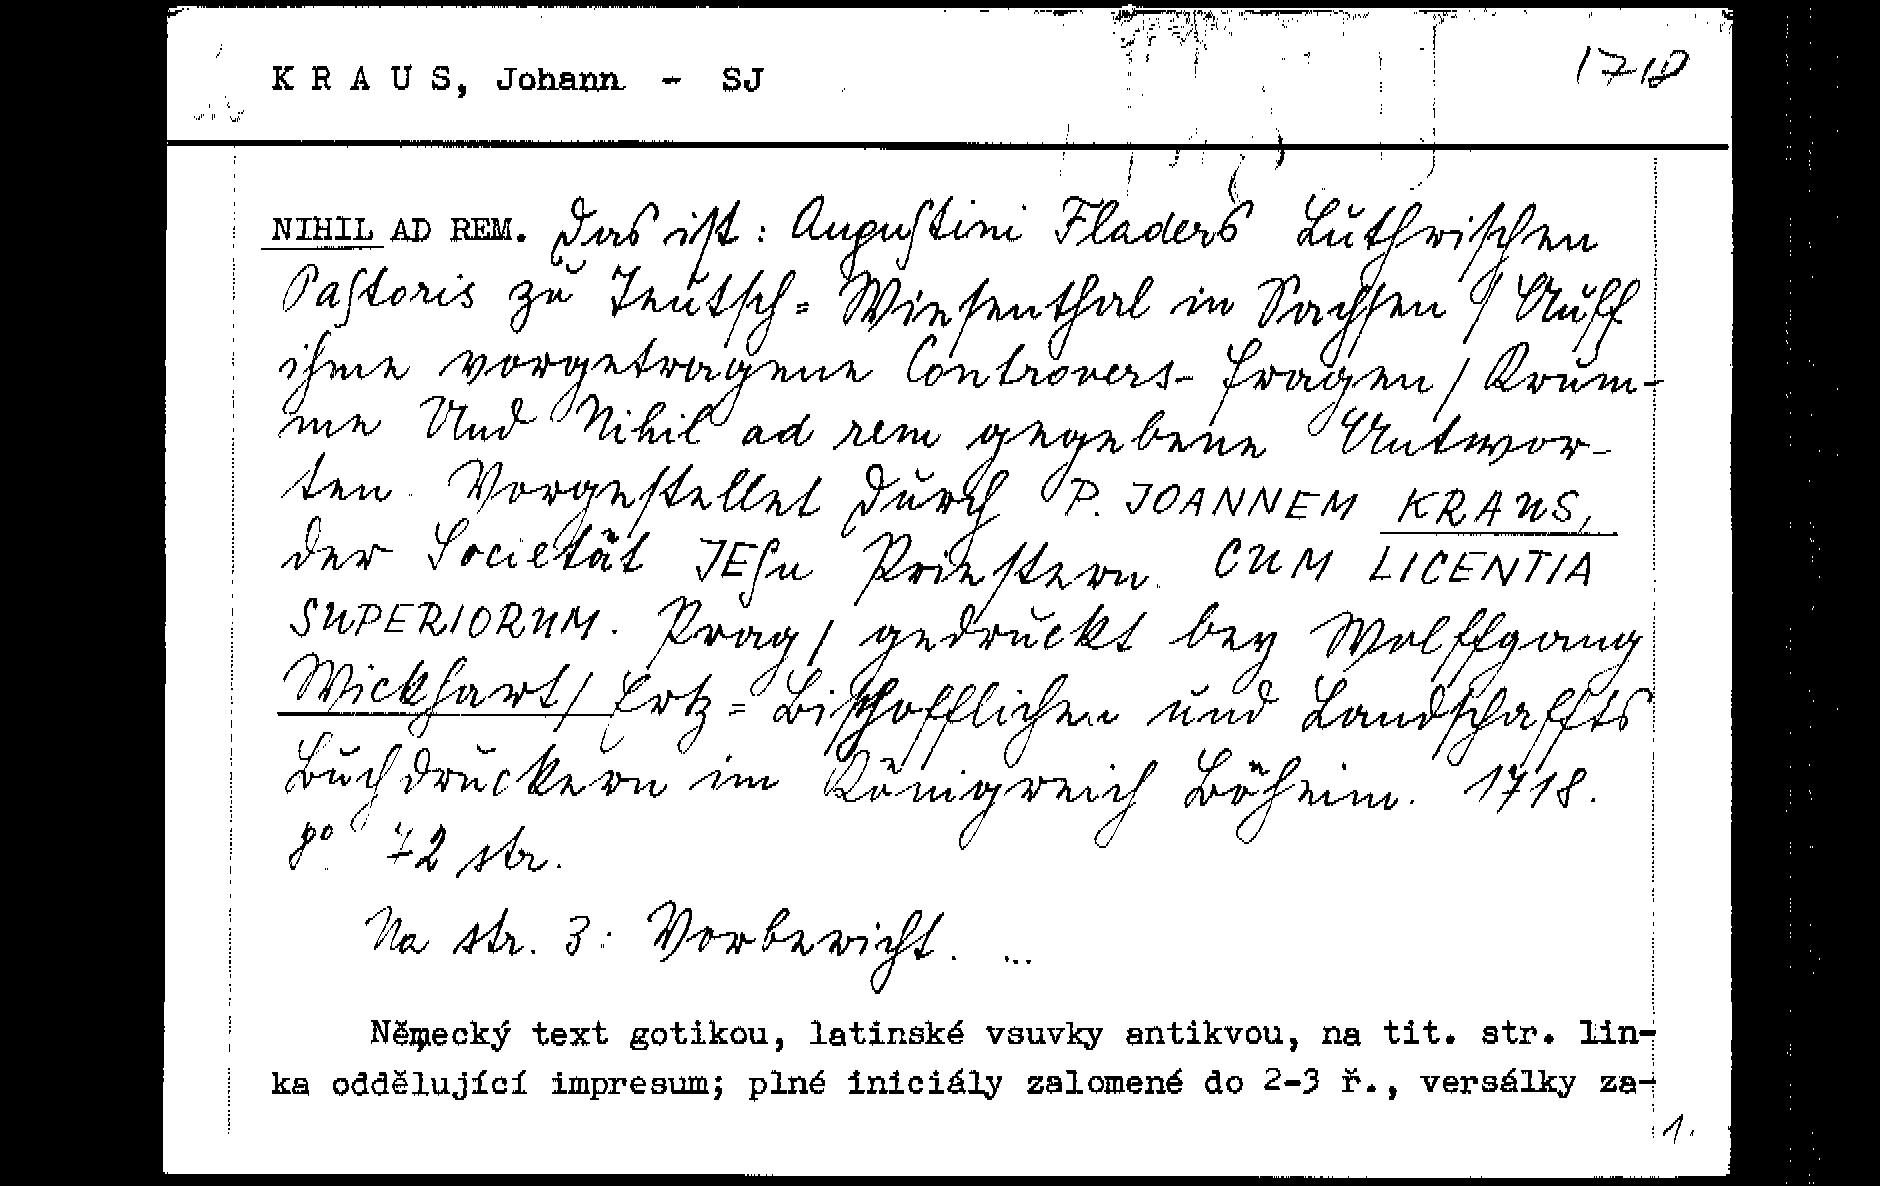 K R A U S, Johann - SJ
1718
NIHIL AD REM. Das ist: Augustini Fladers Luthrischen
Pastoris zu Teutsch= Wiesenthal in Sachsen / Auff
ihme vorgetragene Controvers- fragen / Krum-
me Und Nihil ad rem gegebene Antwor-
ten. Vorgestellet durch P. JOANNEM KRAUS,
der Societät JESu Priestern. CUM LICENTIA
SUPERIORUM. Prag / gedruckt bey Wolffgang
Wickhart / Ertz= Bischofflichen und Landschaffts
Buchdruckern im Königreich Böheim. 1718.
72 str.
Na str. 3: Vorbericht. ...
Německý text gotikou, latinské vsuvky antikvou, na tit. str. lin-
ka oddělující impresum; plné iniciály zalomené do 2-3 ř., versálky za-
1.